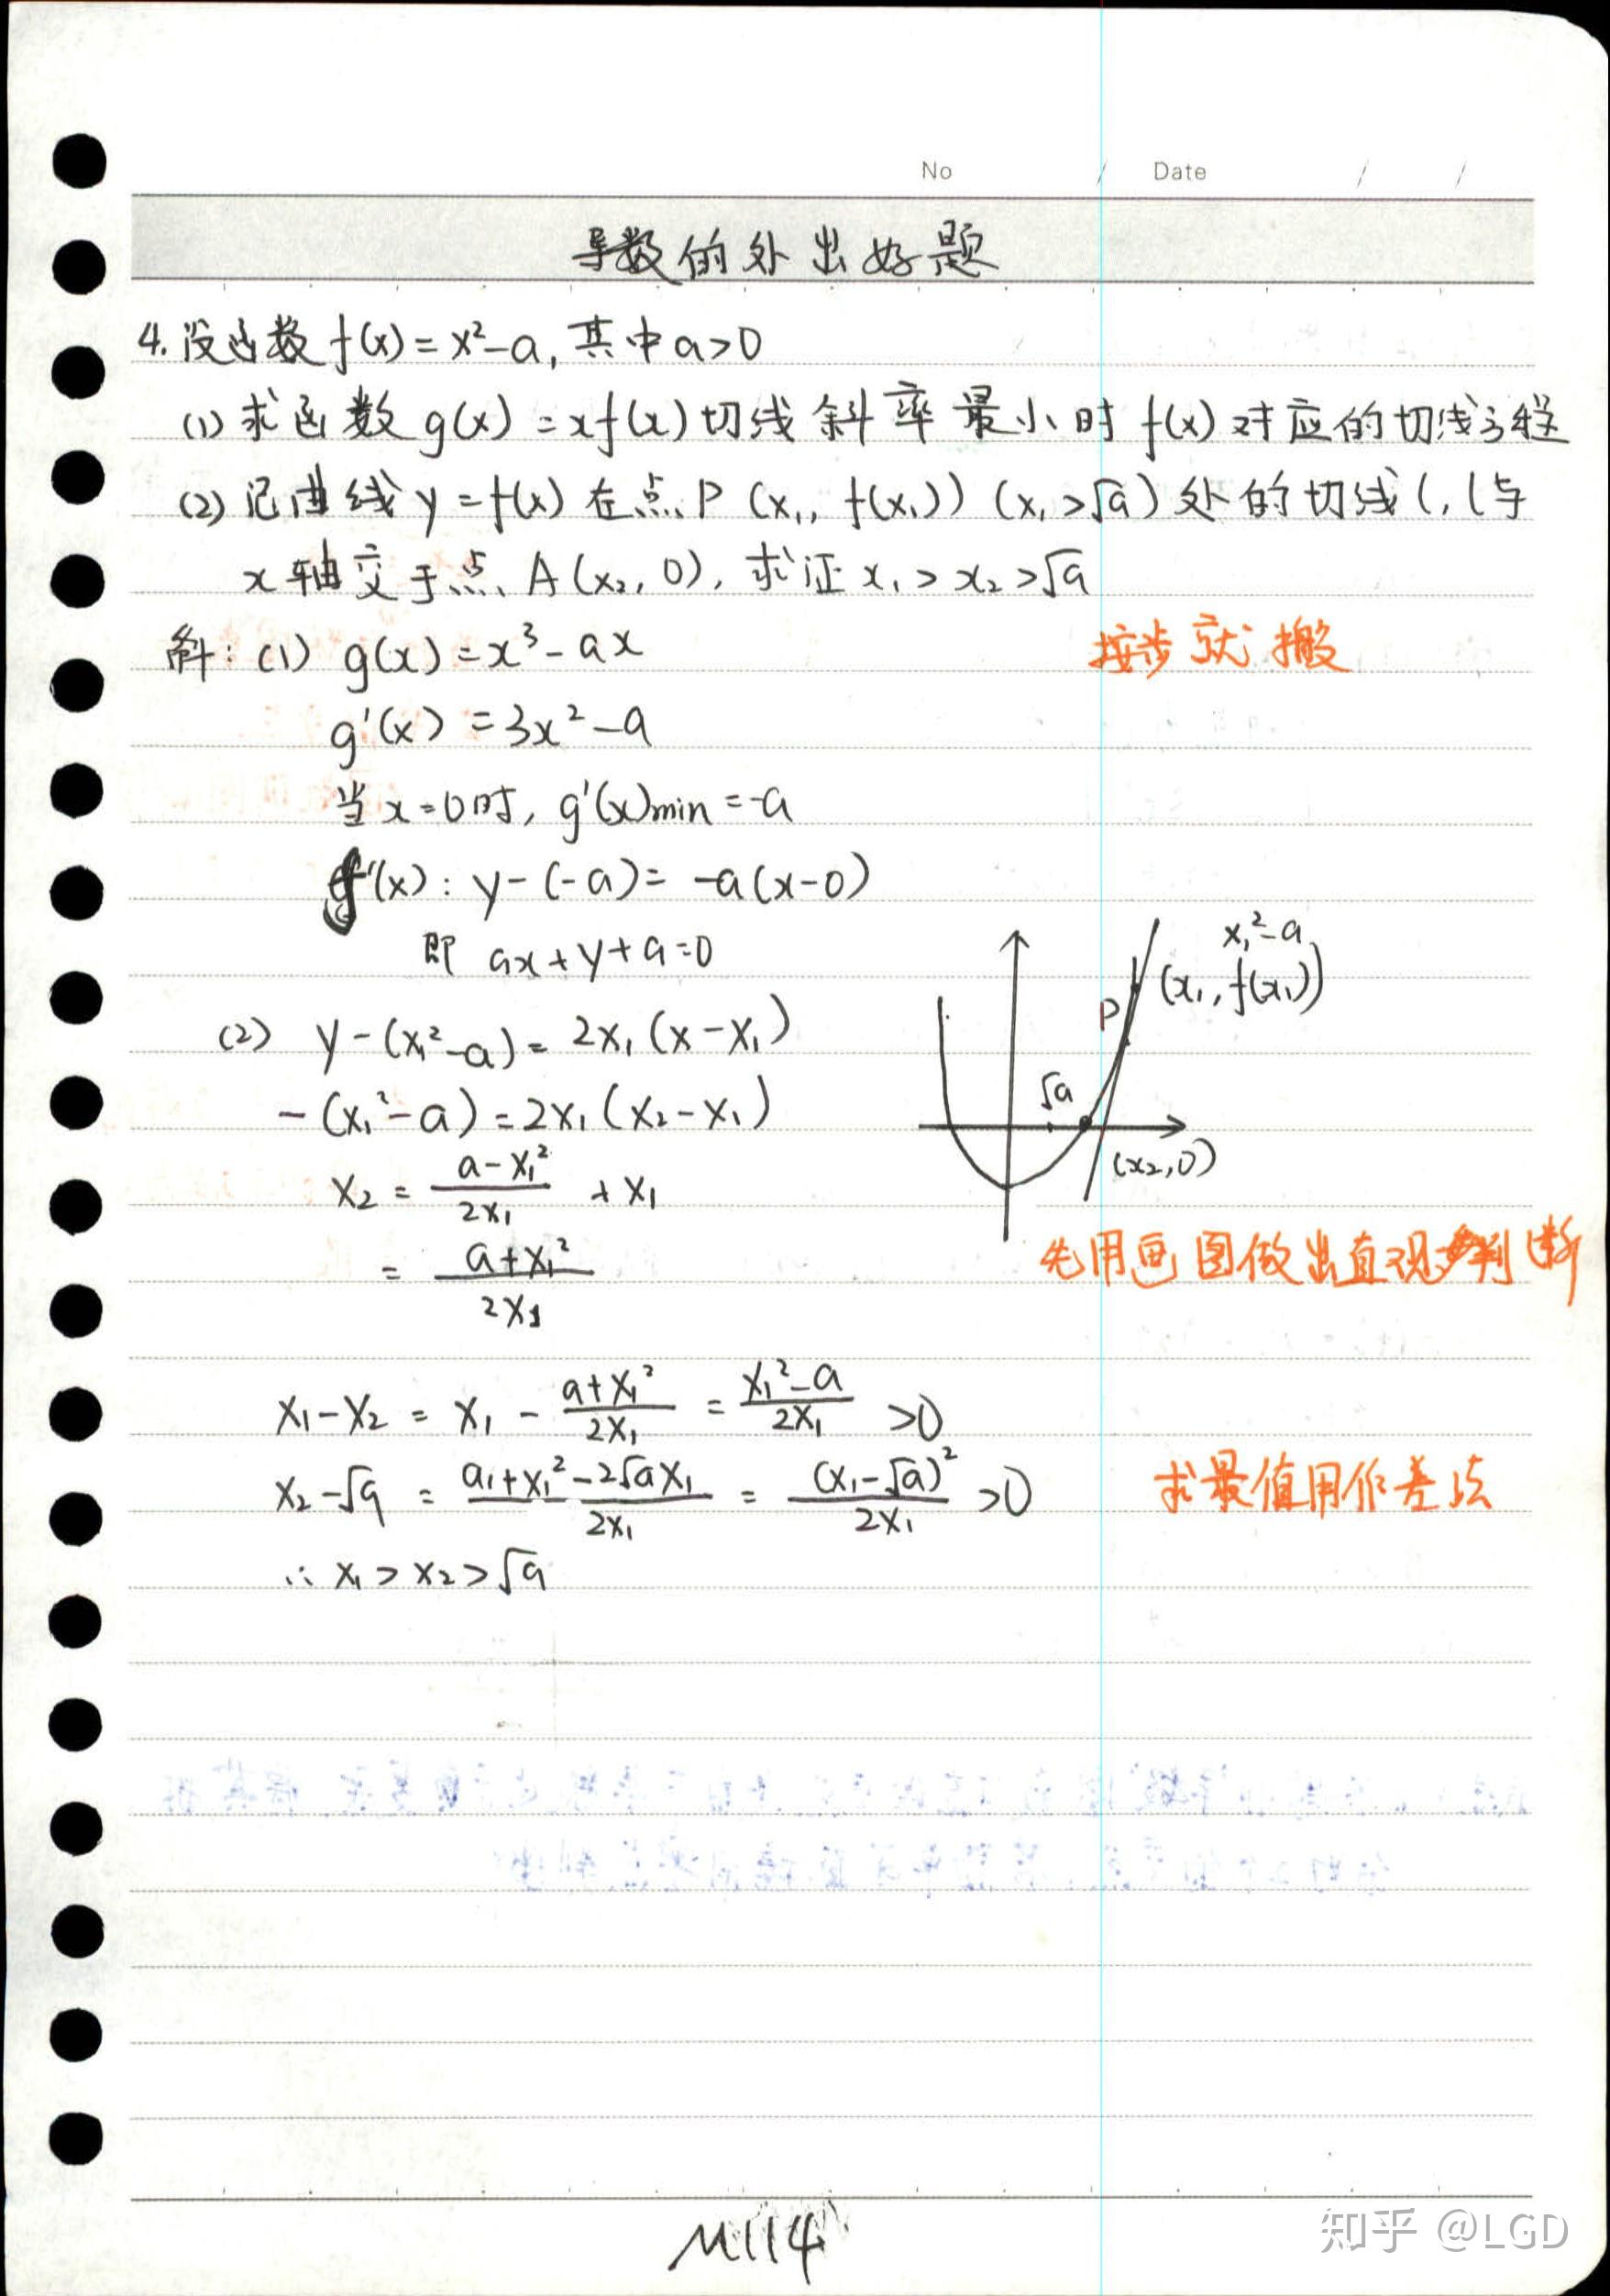 No / Date / /
导数的外出好题
4. 设函数 f(x) = x²-a, 其中 a>0
(1) 求函数 g(x) = xf(x) 切线斜率最小时 f(x) 对应的切线方程
(2) 记曲线 y = f(x) 在点 P (x₁, f(x₁)) (x₁>√a) 处的切线 l, l 与
x 轴交于点 A(x₂, 0), 求证 x₁ > x₂ > √a
解: (1) g(x) = x³ - ax
按步就搬
g'(x) = 3x² - a
当 x=0时, g'(x)min = -a
f'(x): y-(-a) = -a(x-0)
即 ax+y+a=0
x₁²-a
(x₁, f(x₁))
P
√a
(x₂,0)
(2) y-(x₁²-a) = 2x₁(x-x₁)
-(x₁²-a) = 2x₁(x₂-x₁)
x₂ = (a-x₁²)/(2x₁) + x₁
= (a+x₁²)/(2x₁)
先用画图做出直观判断
x₁-x₂ = x₁ - (a+x₁²)/(2x₁) = (x₁²-a)/(2x₁) >0
x₂-√a = (a₁+x₁²-2√ax₁)/(2x₁) = (x₁-√a)²/(2x₁) >0
求最值用作差法
∴ x₁ > x₂ > √a
M114
知乎 @LGD